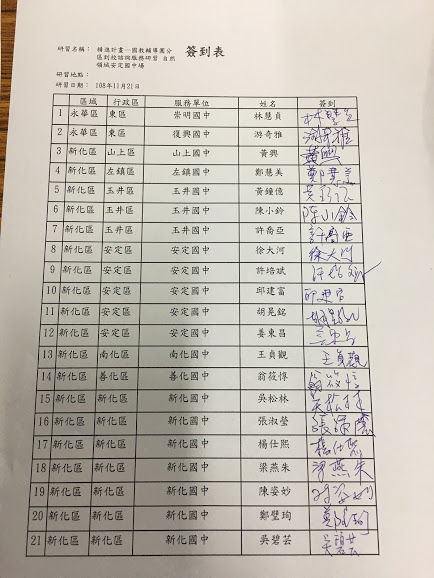 簽到表
研習名稱： 精進計畫—國教輔導團分
區到校諮詢服務研習 自然
領域安定國中場
研習地點：
研習日期： 108年11月21日
區域 行政區 服務單位 姓名 簽到
1 永華區 東區 崇明國中 林慧貞 林慧貞
2 永華區 東區 復興國中 游奇雅 游奇雅
3 新化區 山上區 山上國中 黃興 黃興
4 新化區 左鎮區 左鎮國中 鄭慧美 鄭慧美
5 新化區 玉井區 玉井國中 黃鐘億
6 新化區 玉井區 玉井國中 陳小鈴 陳小鈴
7 新化區 玉井區 玉井國中 許喬亞 許喬亞
8 新化區 安定區 安定國中 徐大河 徐大河
9 新化區 安定區 安定國中 許培斌 許培斌
10 新化區 安定區 安定國中 邱建富 邱建富
11 新化區 安定區 安定國中 胡晃銘
12 新化區 安定區 安定國中 姜東昌 姜東昌
13 新化區 南化區 南化國中 王貞觀 王貞觀
14 新化區 善化區 善化國中 翁筱惇 翁筱惇
15 新化區 新化區 新化國中 吳松林 吳松林
16 新化區 新化區 新化國中 張淑瑩 張淑瑩
17 新化區 新化區 新化國中 楊仕熙 楊仕熙
18 新化區 新化區 新化國中 梁燕朱 梁燕朱
19 新化區 新化區 新化國中 陳姿妙 陳姿妙
20 新化區 新化區 新化國中 鄭璧珣 鄭璧珣
21 新化區 新化區 新化國中 吳碧芸 吳碧芸